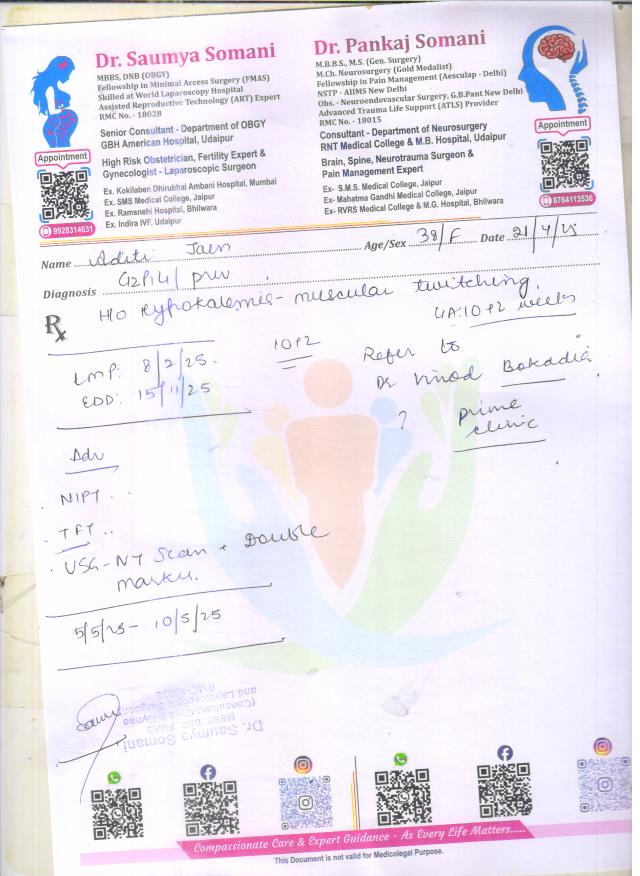 Dr. Saumya Somani
MBBS, DNB (OBGY)
Fellowship in Minimal Access Surgery (FMAS)
Skilled at World Laparoscopy Hospital
Assisted Reproductive Technology (ART) Expert
RMC No. - 18028
Senior Consultant - Department of OBGY
GBH American Hospital, Udaipur
High Risk Obstetrician, Fertility Expert &
Gynecologist - Laparoscopic Surgeon
Ex. Kokilaben Dhirubhai Ambani Hospital, Mumbai
Ex. SMS Medical College, Jaipur
Ex. Ramsnehi Hospital, Bhilwara
Ex. Indira IVF, Udaipur
Appointment
9928314631
Dr. Pankaj Somani
M.B.B.S., M.S. (Gen. Surgery)
M.Ch. Neurosurgery (Gold Medalist)
Fellowship in Pain Management (Aesculap - Delhi)
NSTP - AIIMS New Delhi
Obs. - Neuroendovascular Surgery, G.B.Pant New Delhi
Advanced Trauma Life Support (ATLS) Provider
RMC No. - 18015
Consultant - Department of Neurosurgery
RNT Medical College & M.B. Hospital, Udaipur
Brain, Spine, Neurotrauma Surgeon &
Pain Management Expert
Ex- S.M.S. Medical College, Jaipur
Ex- Mahatma Gandhi Medical College, Jaipur
Ex- RVRS Medical College & M.G. Hospital, Bhilwara
Appointment
8764113536
Name Aditi Jain Age/Sex 38/F Date 21/4/25
Diagnosis G2P1L1/ prev
Rx H/o hypokalemia - muscular twitching.
GA: 10+2 weeks
LMP: 8/2/25. 10+2
EDD: 15/11/25
Refer to
Dr Vinod Bokadia
? prime
clinic
Adv
. NIPT ..
- TFT ..
. USG - NT Scan + Double
Marker.
5/5/25 - 10/5/25
Dr. Saumya Somani
MBBS, DNB, FMAS
(Consultant Obs & Gynae
and Laparoscopic Surgeon)
RMC-18028
Compassionate Care & Expert Guidance - As Every Life Matters.....
This Document is not valid for Medicolegal Purpose.